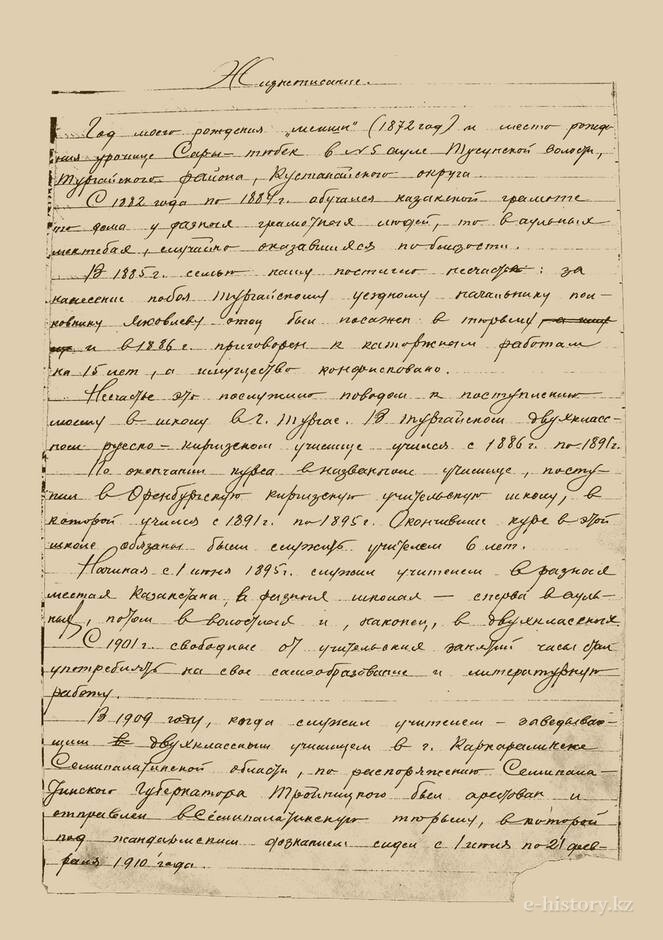 Жизнеописание.
Год моего рождения „мешин" (1872 год) и место рожде-
ния урочище Сары-тюбек в №5 ауле Тусунской волости,
Тургайского района, Кустанайского округа.
С 1882 года по 1884 г. обучался казакской грамоте
то дома у разных грамотных людей, то в аульных
мектебах, случайно оказавшихся поблизости.
В 1885 г. семью нашу постигло несчастье: за
нанесение побоя Тургайскому уездному начальнику пол-
ковнику Яковлеву отец был посажен в тюрьму
и в 1886 г. приговорен к каторжным работам
на 15 лет, а имущество конфисковано.
Несчастье это послужило поводом к поступлению
моему в школу в г. Тургае. В Тургайском двухкласс-
ном русско-киргизском училище учился с 1886 г. по 1891 г.
По окончании курса в названном училище, посту-
пил в Оренбургскую киргизскую учительскую школу, в
которой учился с 1891 г. по 1895 г. Окончившие курс в этой
школе обязаны были служить учителем 6 лет.
Начиная с 1 июня 1895 г. служил учителем в разных
местах Казакстана, в разных школах – сперва в ауль-
ных, потом в волостных и, наконец, в двухклассных.
С 1901 г. свободные от учительских занятий часы стал
употреблять на свое самообразование и литературную
работу.
В 1909 году, когда служил учителем – заведываю-
щим двухклассным училищем в г. Каркаралинске
Семипалатинской области, по распоряжению Семипала-
тинского Губернатора Тройницкого был арестован и
отправлен в Семипалатинскую тюрьму, в которой
под жандармским дознанием сидел с 1 июля по 21 фев-
раля 1910 года.
e-history.kz